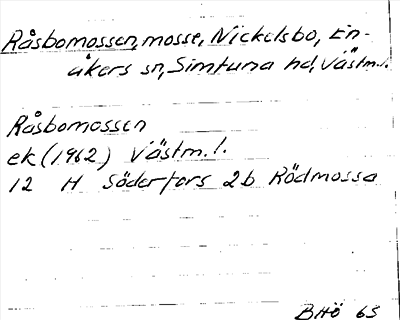 Råsbomossen, mosse, Nickelsbo, En-
åkers sn, Simtuna hd, Västm.l.
Råsbomossen
ek (1962) Västm.l.
12 H Söderfors 2b Rödmossa
BHÖ 65